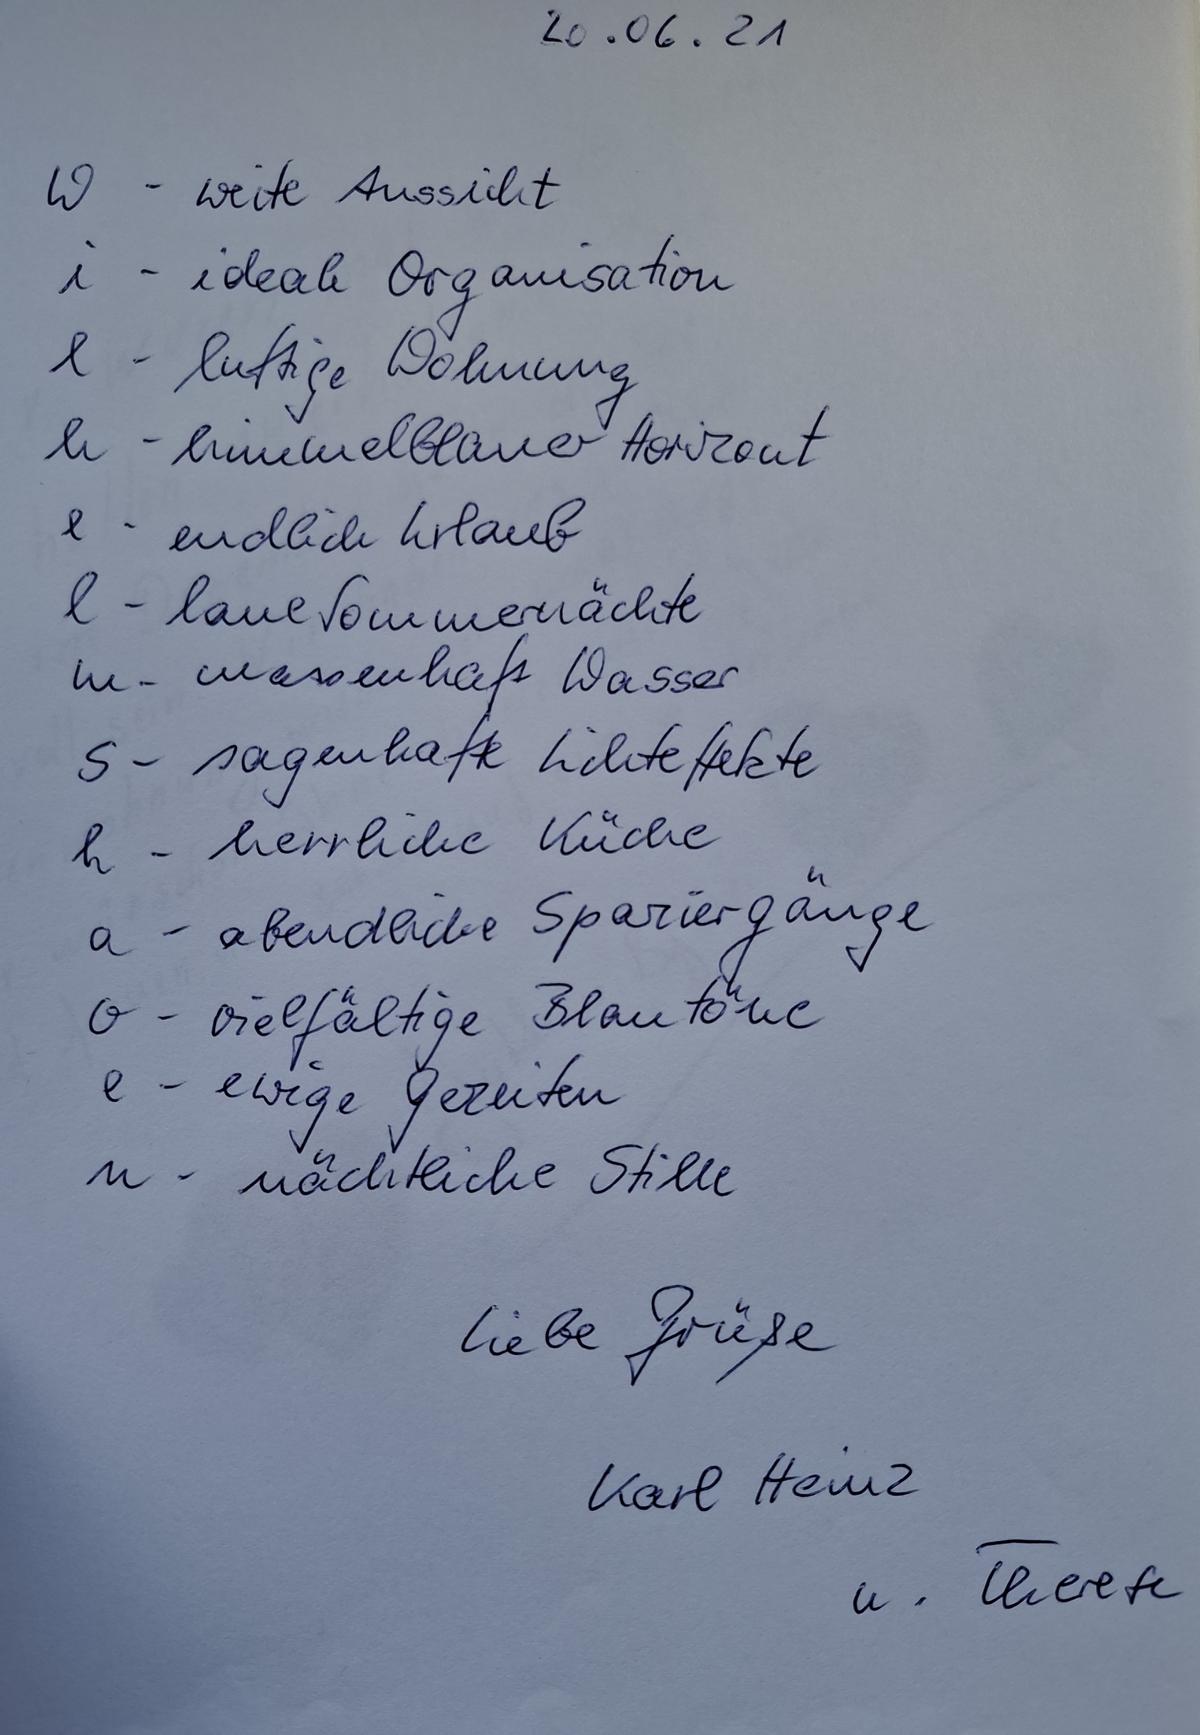 20.06.21
W - weite Aussicht
i - ideale Organisation
l - luftige Wohnung
h - himmelblauer Horizont
e - endlich Urlaub
l - laue Sommernächte
m - massenhaft Wasser
s - sagenhafte Lichteffekte
h - herrliche Küche
a - abendliche Spaziergänge
v - vielfältige Blautöne
e - ewige Gezeiten
n - nächtliche Stille
Liebe Grüße
Karl Heinz
u. Therese